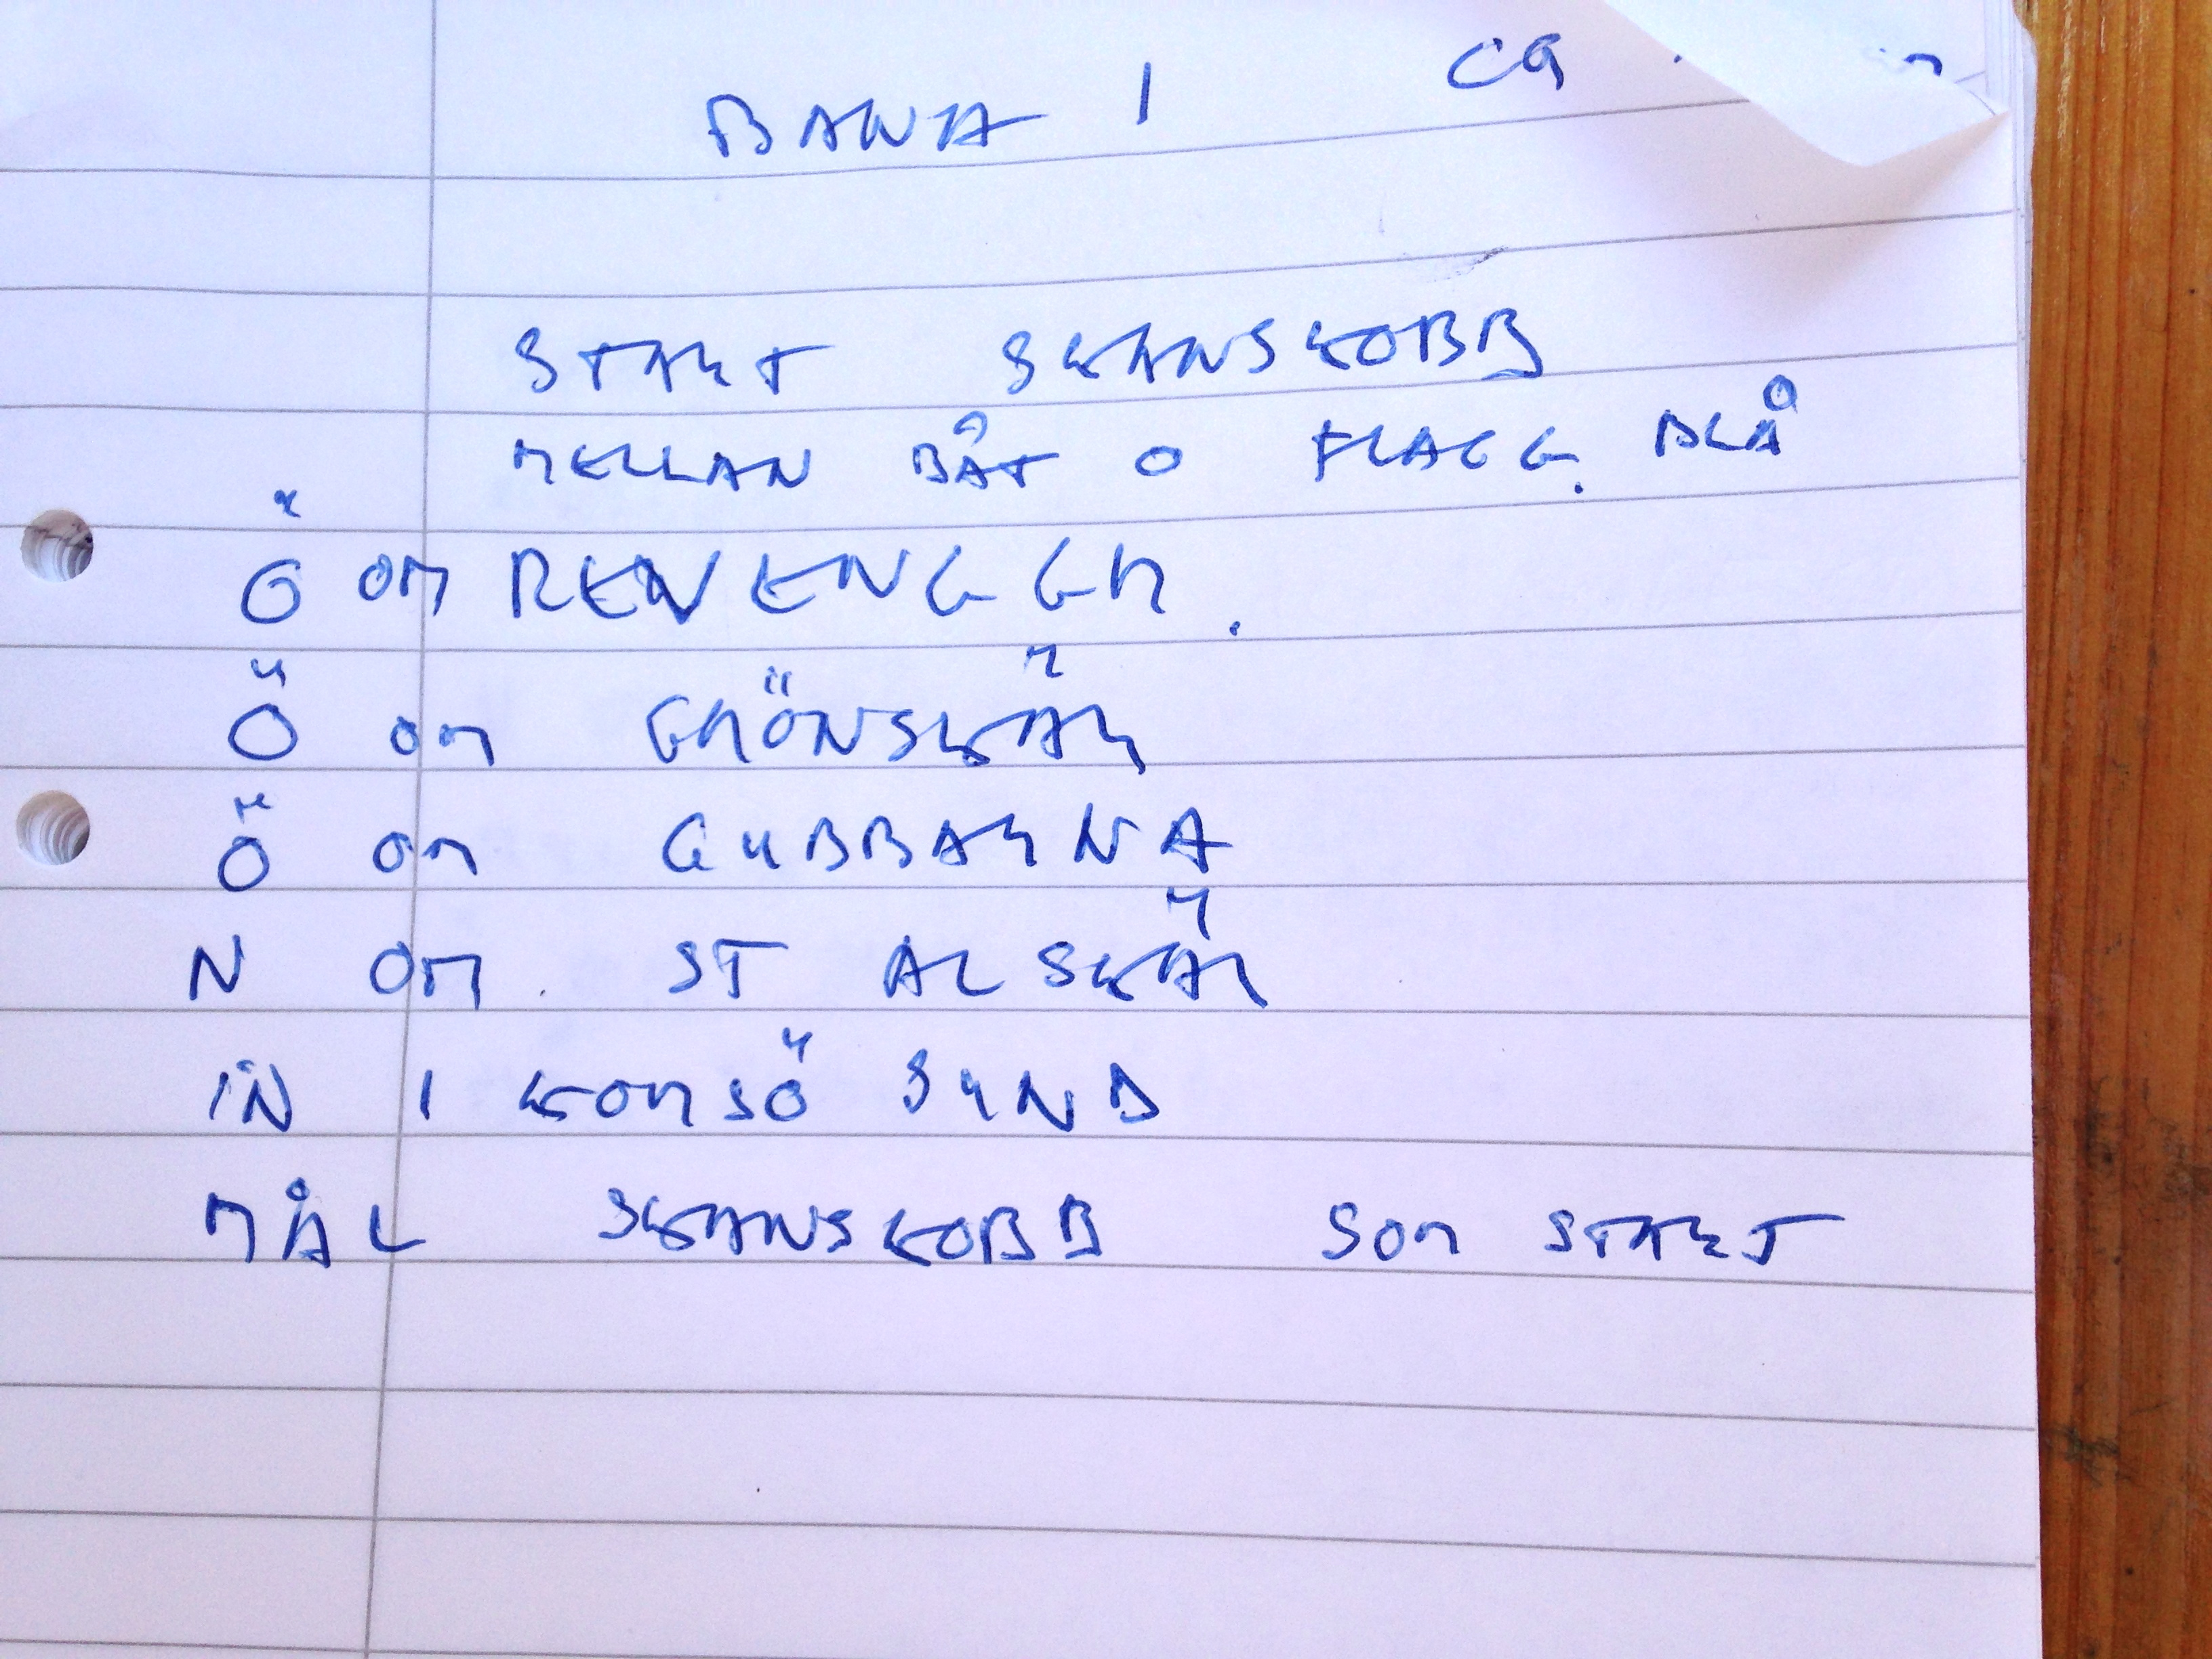 BANA 1 CA
START SKANSKOBB
MELLAN BÅT O FLAGG. BLÅ
Ö OM REVENGGR.
Ö OM GRÖNSKÄR
Ö OM GUBBARNA
N OM ST ALSKÄR
IN I KORSÖ SUND
MÅL SKANSKOBB SOM START